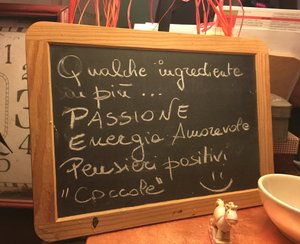 Qualche ingrediente
in più...
PASSIONE
Energia Amorevole
Pensieri positivi
"Coccole"